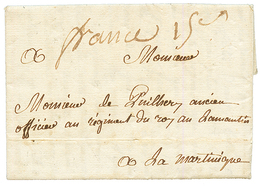 france 15
A Monsieur
Monsieur de Puilhery ancien
officier au régiment du roy au Lamantin
A La martinique